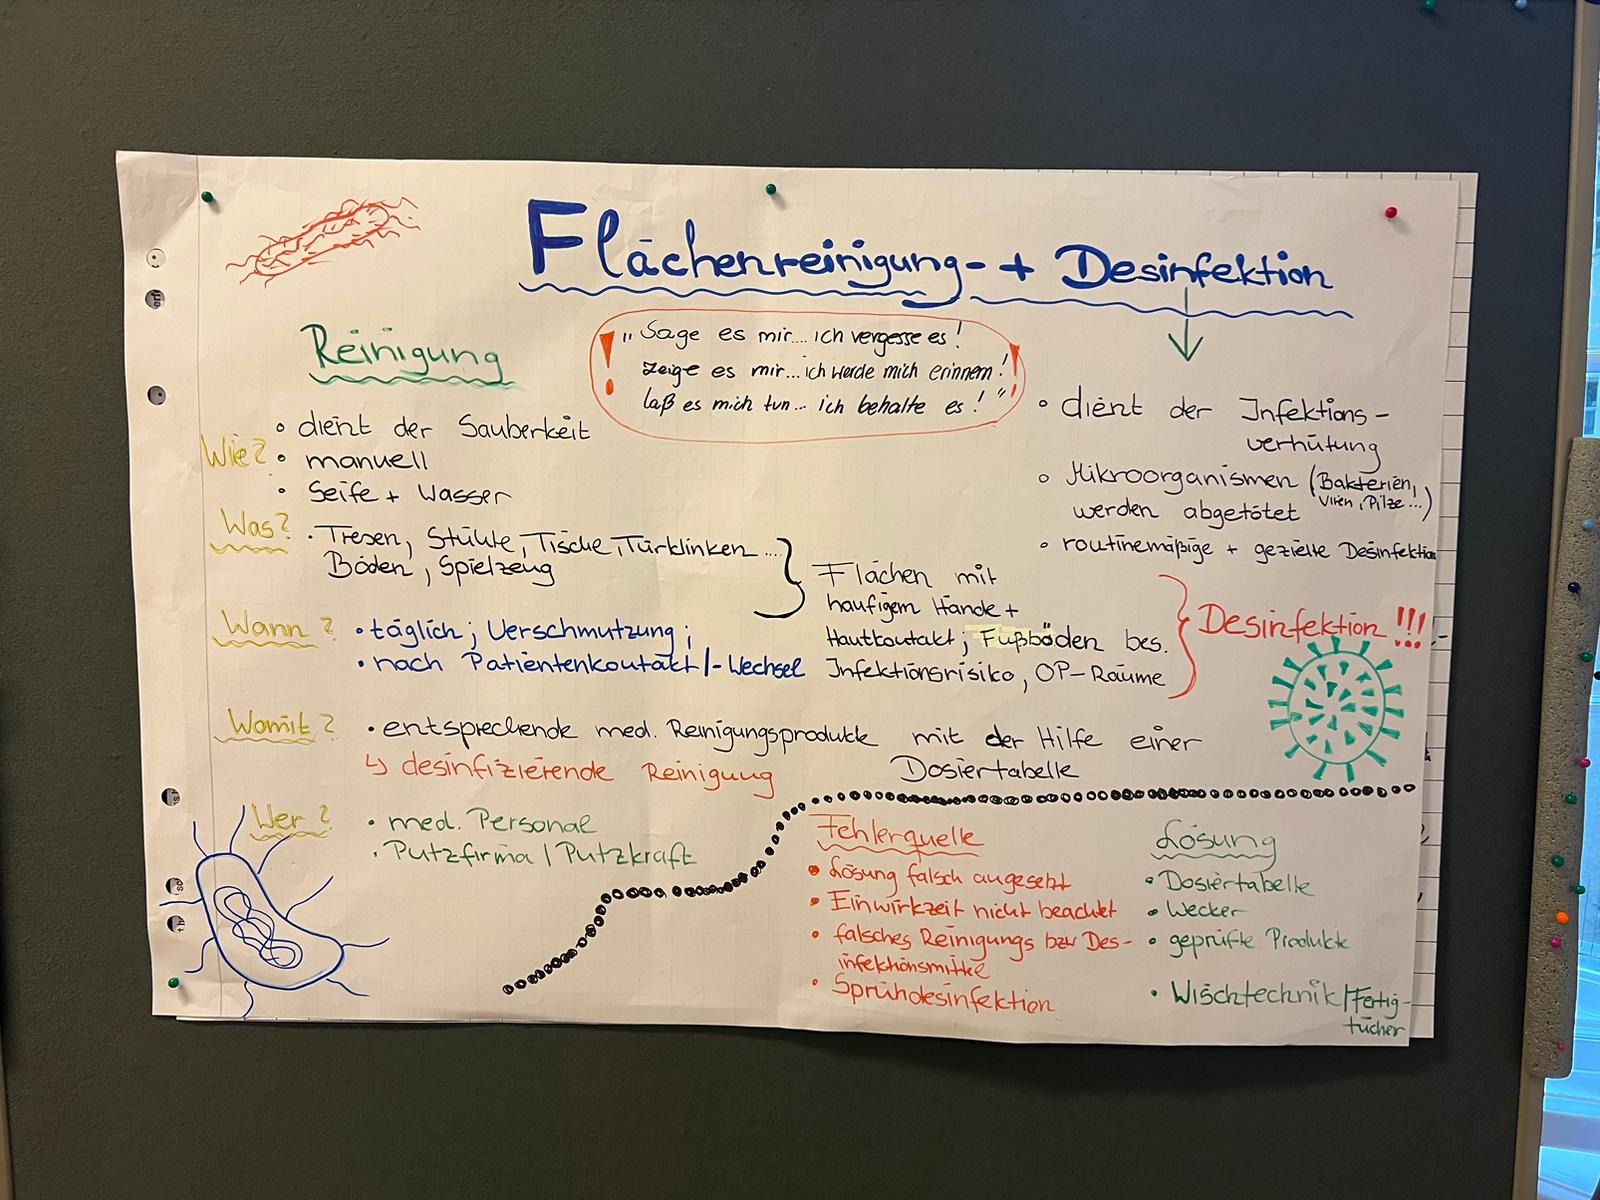 Flächenreinigung- + Desinfektion
„Sage es mir.... ich vergesse es!
Zeige es mir... ich werde mich erinnern!
laß es mich tun... ich behalte es!"
Reinigung
dient der Sauberkeit
Wie?
manuell
Seife + Wasser
Was?
Tresen, Stühle, Tische, Türklinken ....
Böden, Spielzeug
Wann?
täglich; Verschmutzung;
nach Patientenkontakt/-Wechsel
Flächen mit
häufigem Hände +
Hautkontakt; Fußböden bes.
Infektionsrisiko, OP-Räume
dient der Infektions-
verhütung
Mikroorganismen (Bakterien,
Viren, Pilze...)
werden abgetötet
routinemäßige + gezielte Desinfektion
Desinfektion!!!
Womit?
entsprechende med. Reinigungsprodukte mit der Hilfe einer
Dosiertabelle
↳ desinfizierende Reinigung
Wer?
med. Personal
Putzfirma / Putzkraft
Fehlerquelle
Lösung falsch angesetzt
Einwirkzeit nicht beachtet
falsches Reinigungs bzw Des-
infektionsmittel
Sprühdesinfektion
Lösung
Dosiertabelle
Wecker
geprüfte Produkte
Wischtechnik/Fertig-
tücher